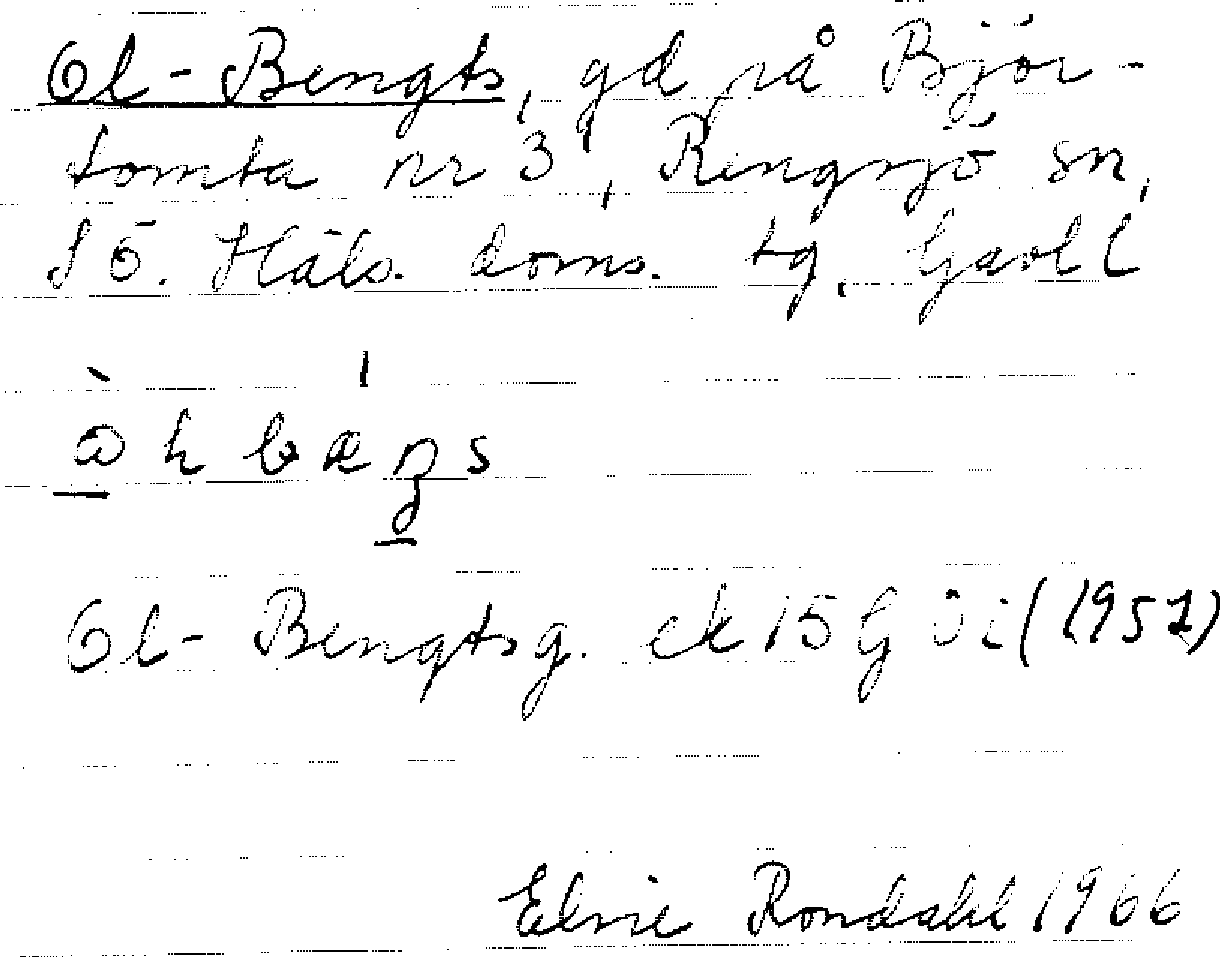 Ol-Bengts, gd på Björ-
tomta nr 3, Rengsjö sn,
SÖ. Häls. doms. tg, Gävl l
Ol-Bengtsg. ek 15 G öi (1957)
Elvie Rondahl 1966